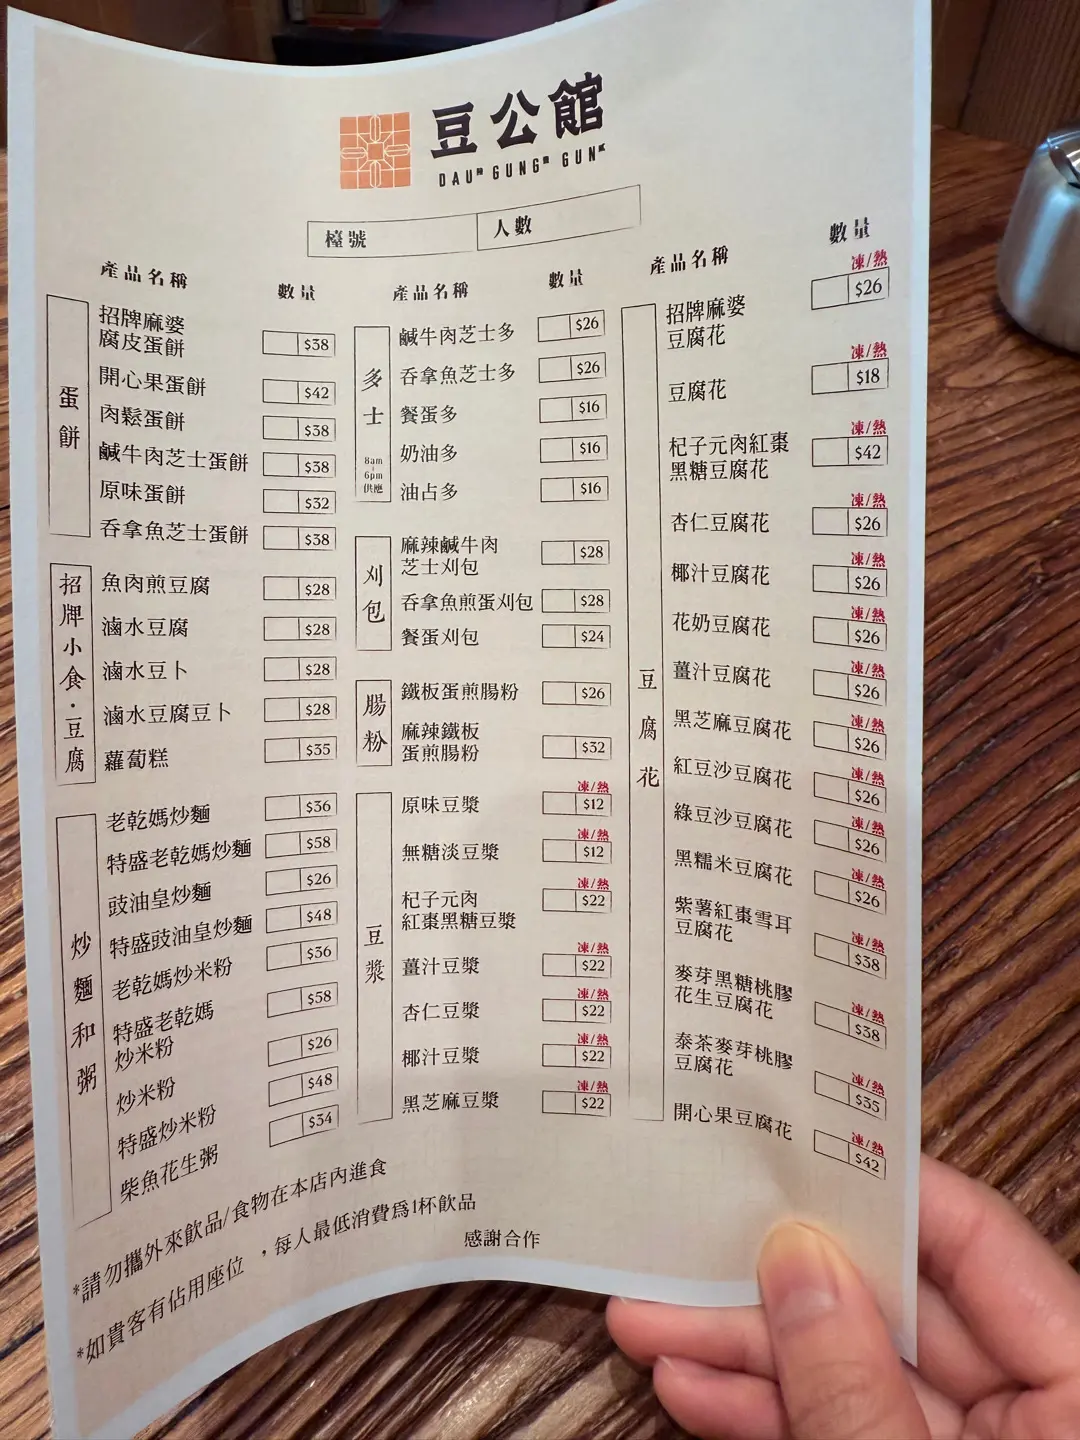 豆公館
DAU GUNG GUN
檯號
人數
產品名稱 數量
蛋餅
招牌麻婆
腐皮蛋餅 $38
開心果蛋餅 $42
肉鬆蛋餅 $38
鹹牛肉芝士蛋餅 $38
原味蛋餅 $32
吞拿魚芝士蛋餅 $38
招牌小食・豆腐
魚肉煎豆腐 $28
滷水豆腐 $28
滷水豆卜 $28
滷水豆腐豆卜 $28
蘿蔔糕 $35
炒麵和粥
老乾媽炒麵 $36
特盛老乾媽炒麵 $58
豉油皇炒麵 $26
特盛豉油皇炒麵 $48
老乾媽炒米粉 $36
特盛老乾媽
炒米粉 $58
炒米粉 $26
特盛炒米粉 $48
柴魚花生粥 $34
產品名稱 數量
多士
8am
6pm
供應
鹹牛肉芝士多 $26
吞拿魚芝士多 $26
餐蛋多 $16
奶油多 $16
油占多 $16
刈包
麻辣鹹牛肉
芝士刈包 $28
吞拿魚煎蛋刈包 $28
餐蛋刈包 $24
腸粉
鐵板蛋煎腸粉 $26
麻辣鐵板
蛋煎腸粉 $32
豆漿
凍/熱
原味豆漿 $12
凍/熱
無糖淡豆漿 $12
凍/熱
杞子元肉 $22
紅棗黑糖豆漿
凍/熱
薑汁豆漿 $22
凍/熱
杏仁豆漿 $22
凍/熱
椰汁豆漿 $22
凍/熱
黑芝麻豆漿 $22
產品名稱 數量
豆腐花
凍/熱
招牌麻婆 $26
豆腐花
凍/熱
豆腐花 $18
凍/熱
杞子元肉紅棗 $42
黑糖豆腐花
凍/熱
杏仁豆腐花 $26
凍/熱
椰汁豆腐花 $26
凍/熱
花奶豆腐花 $26
凍/熱
薑汁豆腐花 $26
凍/熱
黑芝麻豆腐花 $26
凍/熱
紅豆沙豆腐花 $26
凍/熱
綠豆沙豆腐花 $26
凍/熱
黑糯米豆腐花 $26
凍/熱
紫薯紅棗雪耳
豆腐花 $38
凍/熱
麥芽黑糖桃膠
花生豆腐花 $38
凍/熱
泰茶麥芽桃膠
豆腐花 $35
凍/熱
開心果豆腐花 $42
*請勿攜外來飲品/食物在本店內進食
*如貴客有佔用座位，每人最低消費爲1杯飲品
感謝合作